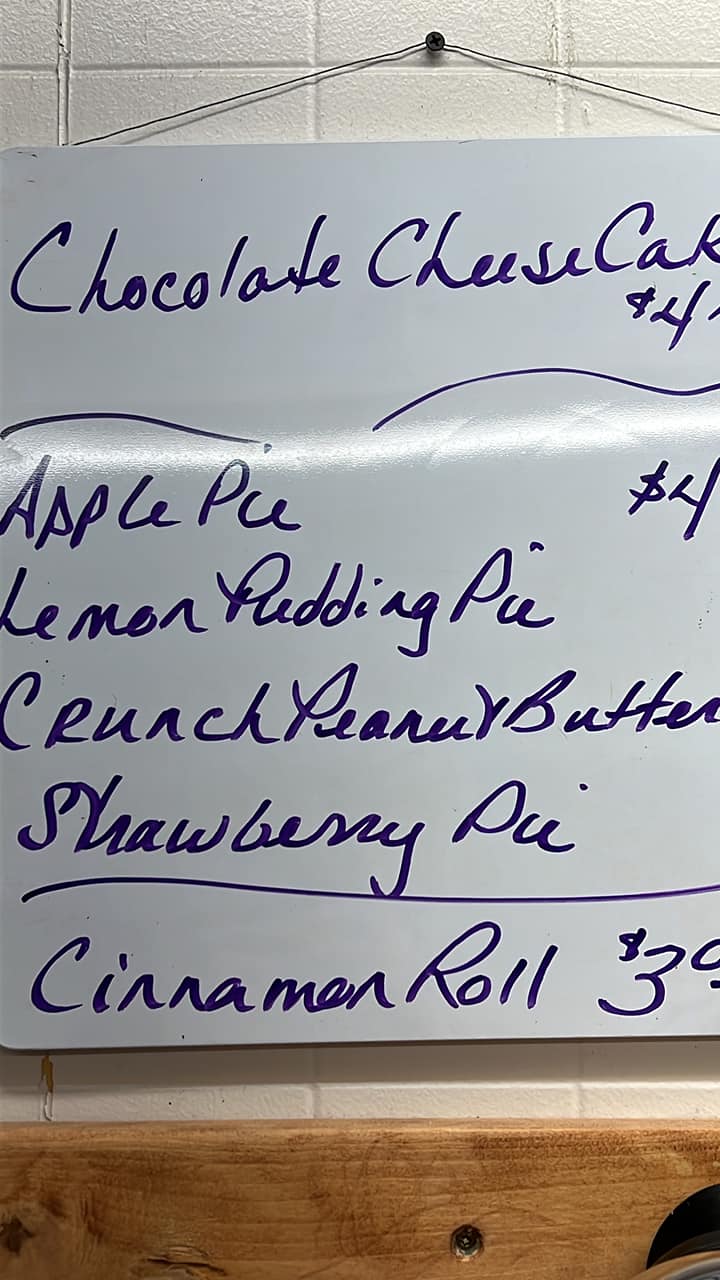 Chocolate Cheese Cak
$4
Apple Pie $4
Lemon Pudding Pie
Crunch Peanut Butter
Strawberry Pie
Cinnamon Roll $3